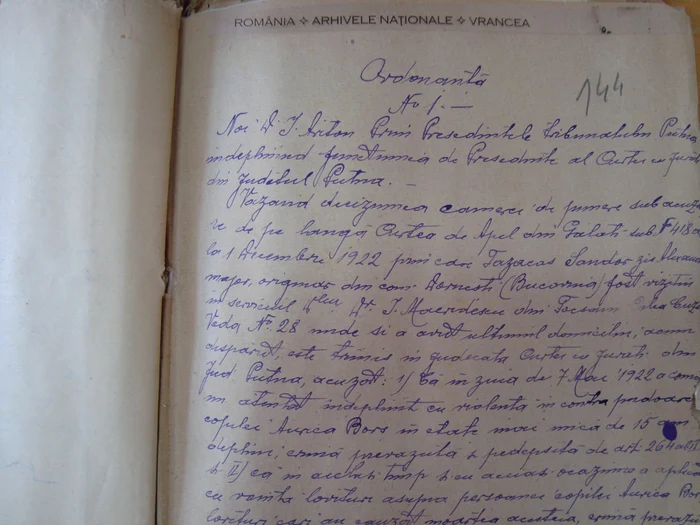 ROMÂNIA ✧ ARHIVELE NAȚIONALE ✧ VRANCEA
144
Ordonanță
No 1. —
Noi D. I. Ariton Prim Președintele Tribunalului Putna
îndeplinind funcțiunea de Președinte al Curtei cu Jurați
din Județul Putna. —
Văzând deciziunea camerei de punere sub acuza
re de pe lângă Curtea de Apel din Galați sub No 418 a
la 1 Decembrie 1922 prin care Tazacas Sandor zis
major, originar din com. Dornești (Bucovina) fost vizitiu
în serviciul D-lui Dr. I. Macridescu din Focșani Cuza
Vodă No. 28 unde și a avut ultimul domiciliu, acum
dispărut, este trimes în judecata Curtei cu jurați din
Jud Putna, acuzat: 1/ Că în ziua de 7 Mai 1922 a comis
un atentat îndeplinit cu violență in contra pudoarei
copilei Aurica Bors în etate mai mică de 15 ani
deplini, crimă prevăzută și pedepsită de art. 264
și II) că în acelaș timp și cu aceiaș ocaziune a aplicat
cu voință lovituri asupra persoanei copilei Aurica Bors
lovituri cari au cauzat moartea acesteia, crimă